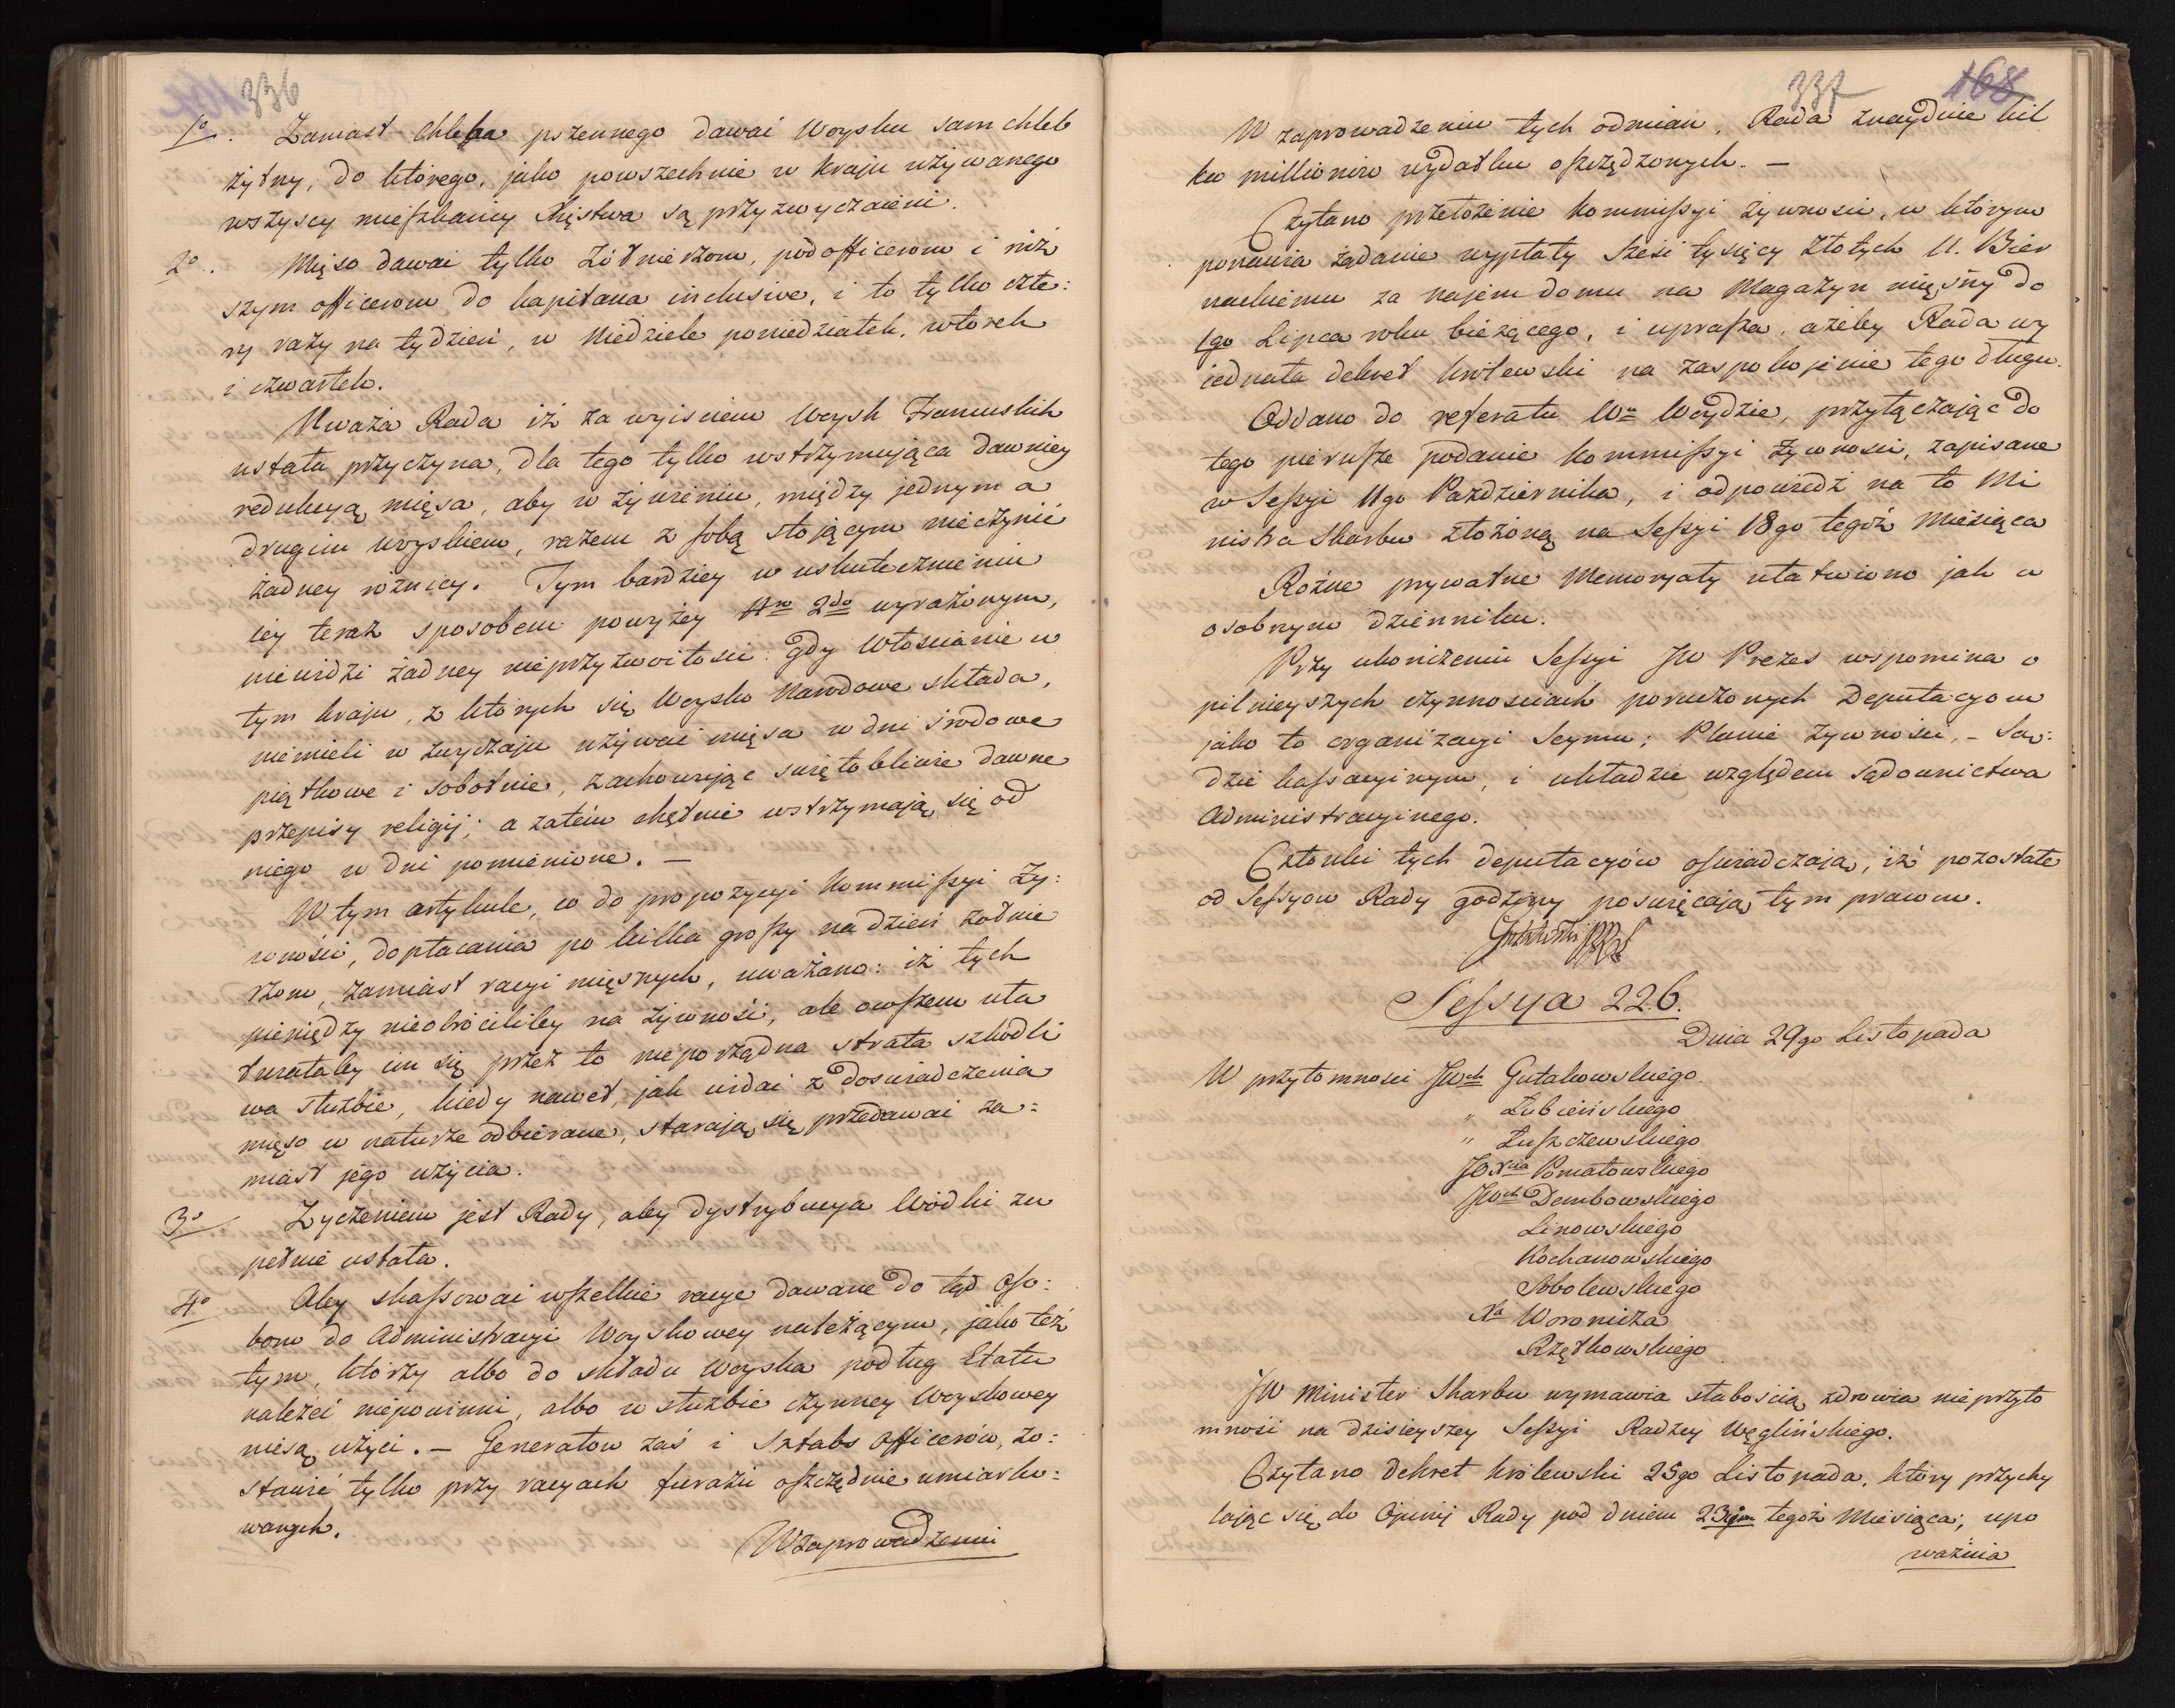 336
1o. Zamiast chleba pszennego dawać Woysku sam chleb
żytny, do którego, jako powszechnie w kraju używanego
wszyscy mieſzkańcy Xięstwa są przyzwyczaieni.
2o.. Mięso dawać tylko Żołnierzom, podofficerom i niż
szym officerom do kapitana inclusive, i to tylko czte:
ry razy na tydzień, w Niedziele poniedziałek, wtorek
i czwartek.
Uważa Rada iż za wyisciem Woysk Francuskich
ustała przyczyna, dla tego tylko wstrzymująca dawniey
redukcyą mięsa, aby w żywieniu, między jednym a
drugim woyskiem, razem z ſobą stojącym nieczynić
żadney rożnicy. Tym bardziey w uskutecznieniu
iey teraz sposobem powyżey Nro 2do wyrażonym,
niewidzi żadney nieprzyzwoitosci: gdy Włościanie w
tym kraju, z których się Woysko Narodowe składa,
niemieli w zwyczaju używać mięsa w dni środowe
piątkowe i sobotnie, zachowując swiętobliwie dawne
przepisy religij; a zatém chętnie wstrzymają się od
niego w dni pomienione. —
W tym artykule, co do propozycyi Kommiſsyi Ży:
wności, dopłacania po kilka groſzy na dzień żołnie
rzom, zamiast racyi mięsnych, uważano: iż tych
pieniędzy nieobróciliby na żywność, ale owſzem uła
twiałaby im się przez to nieporządna strata szkodli
wa służbie, kiedy nawet, jak widać z doswiadczenia
mięso w naturze odbierane, starają się przedawać za=
miast jego użycia.
3o Życzeniem jest Rady, aby dystrybucya Wódki zu
pełnie ustała.
4o Aby skaſsować wſzelkie racye dawane do tąd Oſo:
bom do Administracyi Woyskowey należącym, jako też
tym, którzy albo do składu Woyska podług Etatu
należeć niepowinni, albo w służbie czynney Woyskowey
niesą użyci. — Generałow zaś i Sztabs Officerów, zo:
stawić tylko przy racyach furażu oſzczędnie umiarko:
wanych.
W zaprowadzeniu
337
168
W zaprowadzeniu tych odmian, Rada znaydzie kil
ku millionów wydatku oſzczędzonych. —
Czytano przełożenie Kommiſsyi żywnosci, w którym
ponawia żądanie wypłaty Sześć tysięcy Złotych U. Bier
nackiemu za najem domu na Magazyn mięsny do
1go Lipca roku bieżącego, i upraſza, ażeby Rada wy
iednała dekret Królewski na zaspokojenie tego długu.
Oddano do referatu Wu Woydzie, przyłączając do
tego pierwſze podanie Kommiſsyi żywnosci, zapisane
w Seſsyi 11go Pazdziernika, i odpowiedź na to Mi
nistra Skarbu złożoną na Seſsyi 18go tegoż Miesiąca
Rożne prywatne Memoryały ułatwiono jak w
osobnym dzienniku.
Przy ukończeniu Seſsyi JW Prezes wspomina o
pilnieyszych czynnosciach poruczonych Deputacyom
jako to organizacyi Seymu; Planie żywności, – Są:
dzie kaſsacyinym, i układzie względem sądownictwa
Administracyinego.
Członki tych deputacyów oſwiadczają, iż pozostałe
od Seſsyow Rady godziny poswięcają tym pracom.
Gutakowski
Seſsya 226.
Dnia 29go Listopada
W przytomnosci JWch Gutakowskiego.
" Łubieńskiego
" Łuſzczewskiego
JO Xcia Poniatowskiego
JWch Dembowskiego
Linowskiego
Kochanowskiego
Sobolewskiego
Xa Woronicza
Rzętkowskiego
JW Minister Skarbu wymawia słabością zdrowia nieprzyto
mność na dzisieyszey Seſsyi Radzcy Węglińskiego.
Czytano dekret Królewski 25go Listopada, który przychy
lając się do Opinij Rady pod dniem 23im tegoż Miesiąca; upo
ważnia